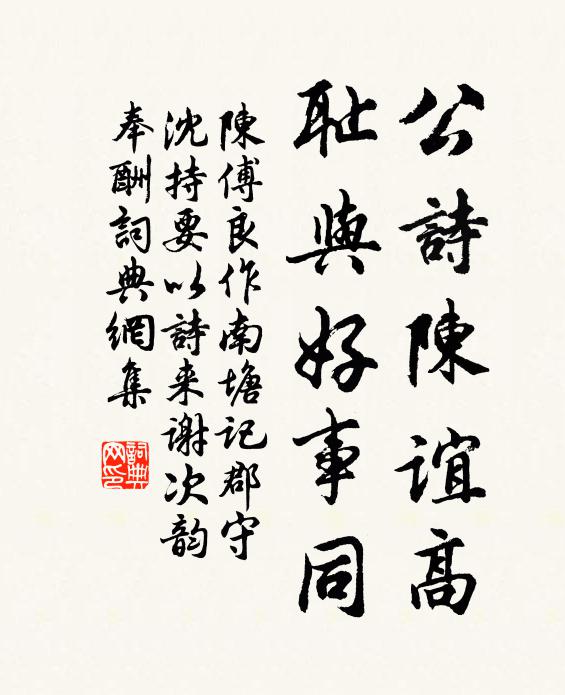 公詩陳誼高
耻與好事同
陳傅良作南塘記郡守
沈持要以詩来謝次韵
奉酬詞典網集
詞典网印